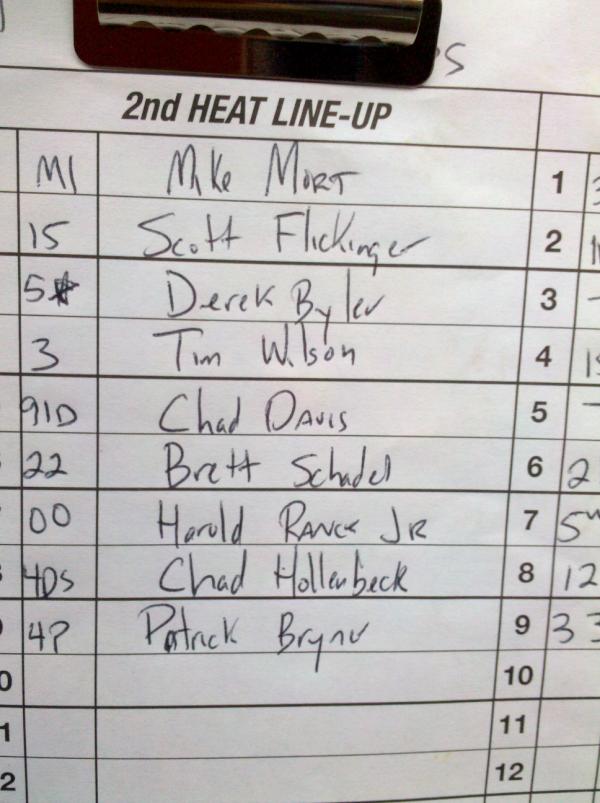 S
2nd HEAT LINE-UP
M1 Mike MORT 1
15 Scott Flickinger 2
5* Derek Byler 3
3 Tim Wilson 4
91D Chad DAVIS 5
22 Brett Schadel 6 2
00 Harold RANCK JR 7 5
4DS Chad Hollenbeck 8 12
4P Patrick Bryner 9 33
0 10
1 11
2 12